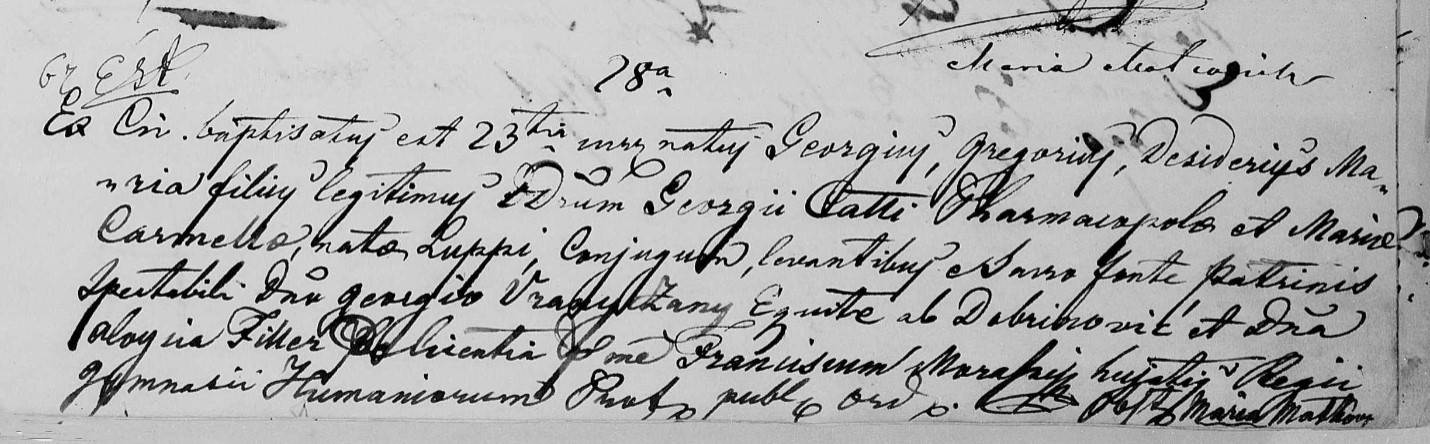 28ª
Maria
Ex Civ. baptisatus est 23tia natus Georgius, Gregorius, Desiderius Ma-
ria filius legitimus DDrum Georgii Catti Pharmacopolæ et Mariæ
Carmellæ, natæ Luppi, Conjugum, levantibus e Sacro fonte patrinis
Spectabili Dno Georgio Vranyczany Equite ab Dobrinovic et Dna
Aloysia Filler Licentia me Franciscum hujatis Regii
Gymnasii Humaniorum Prof. publ. ord. Maria